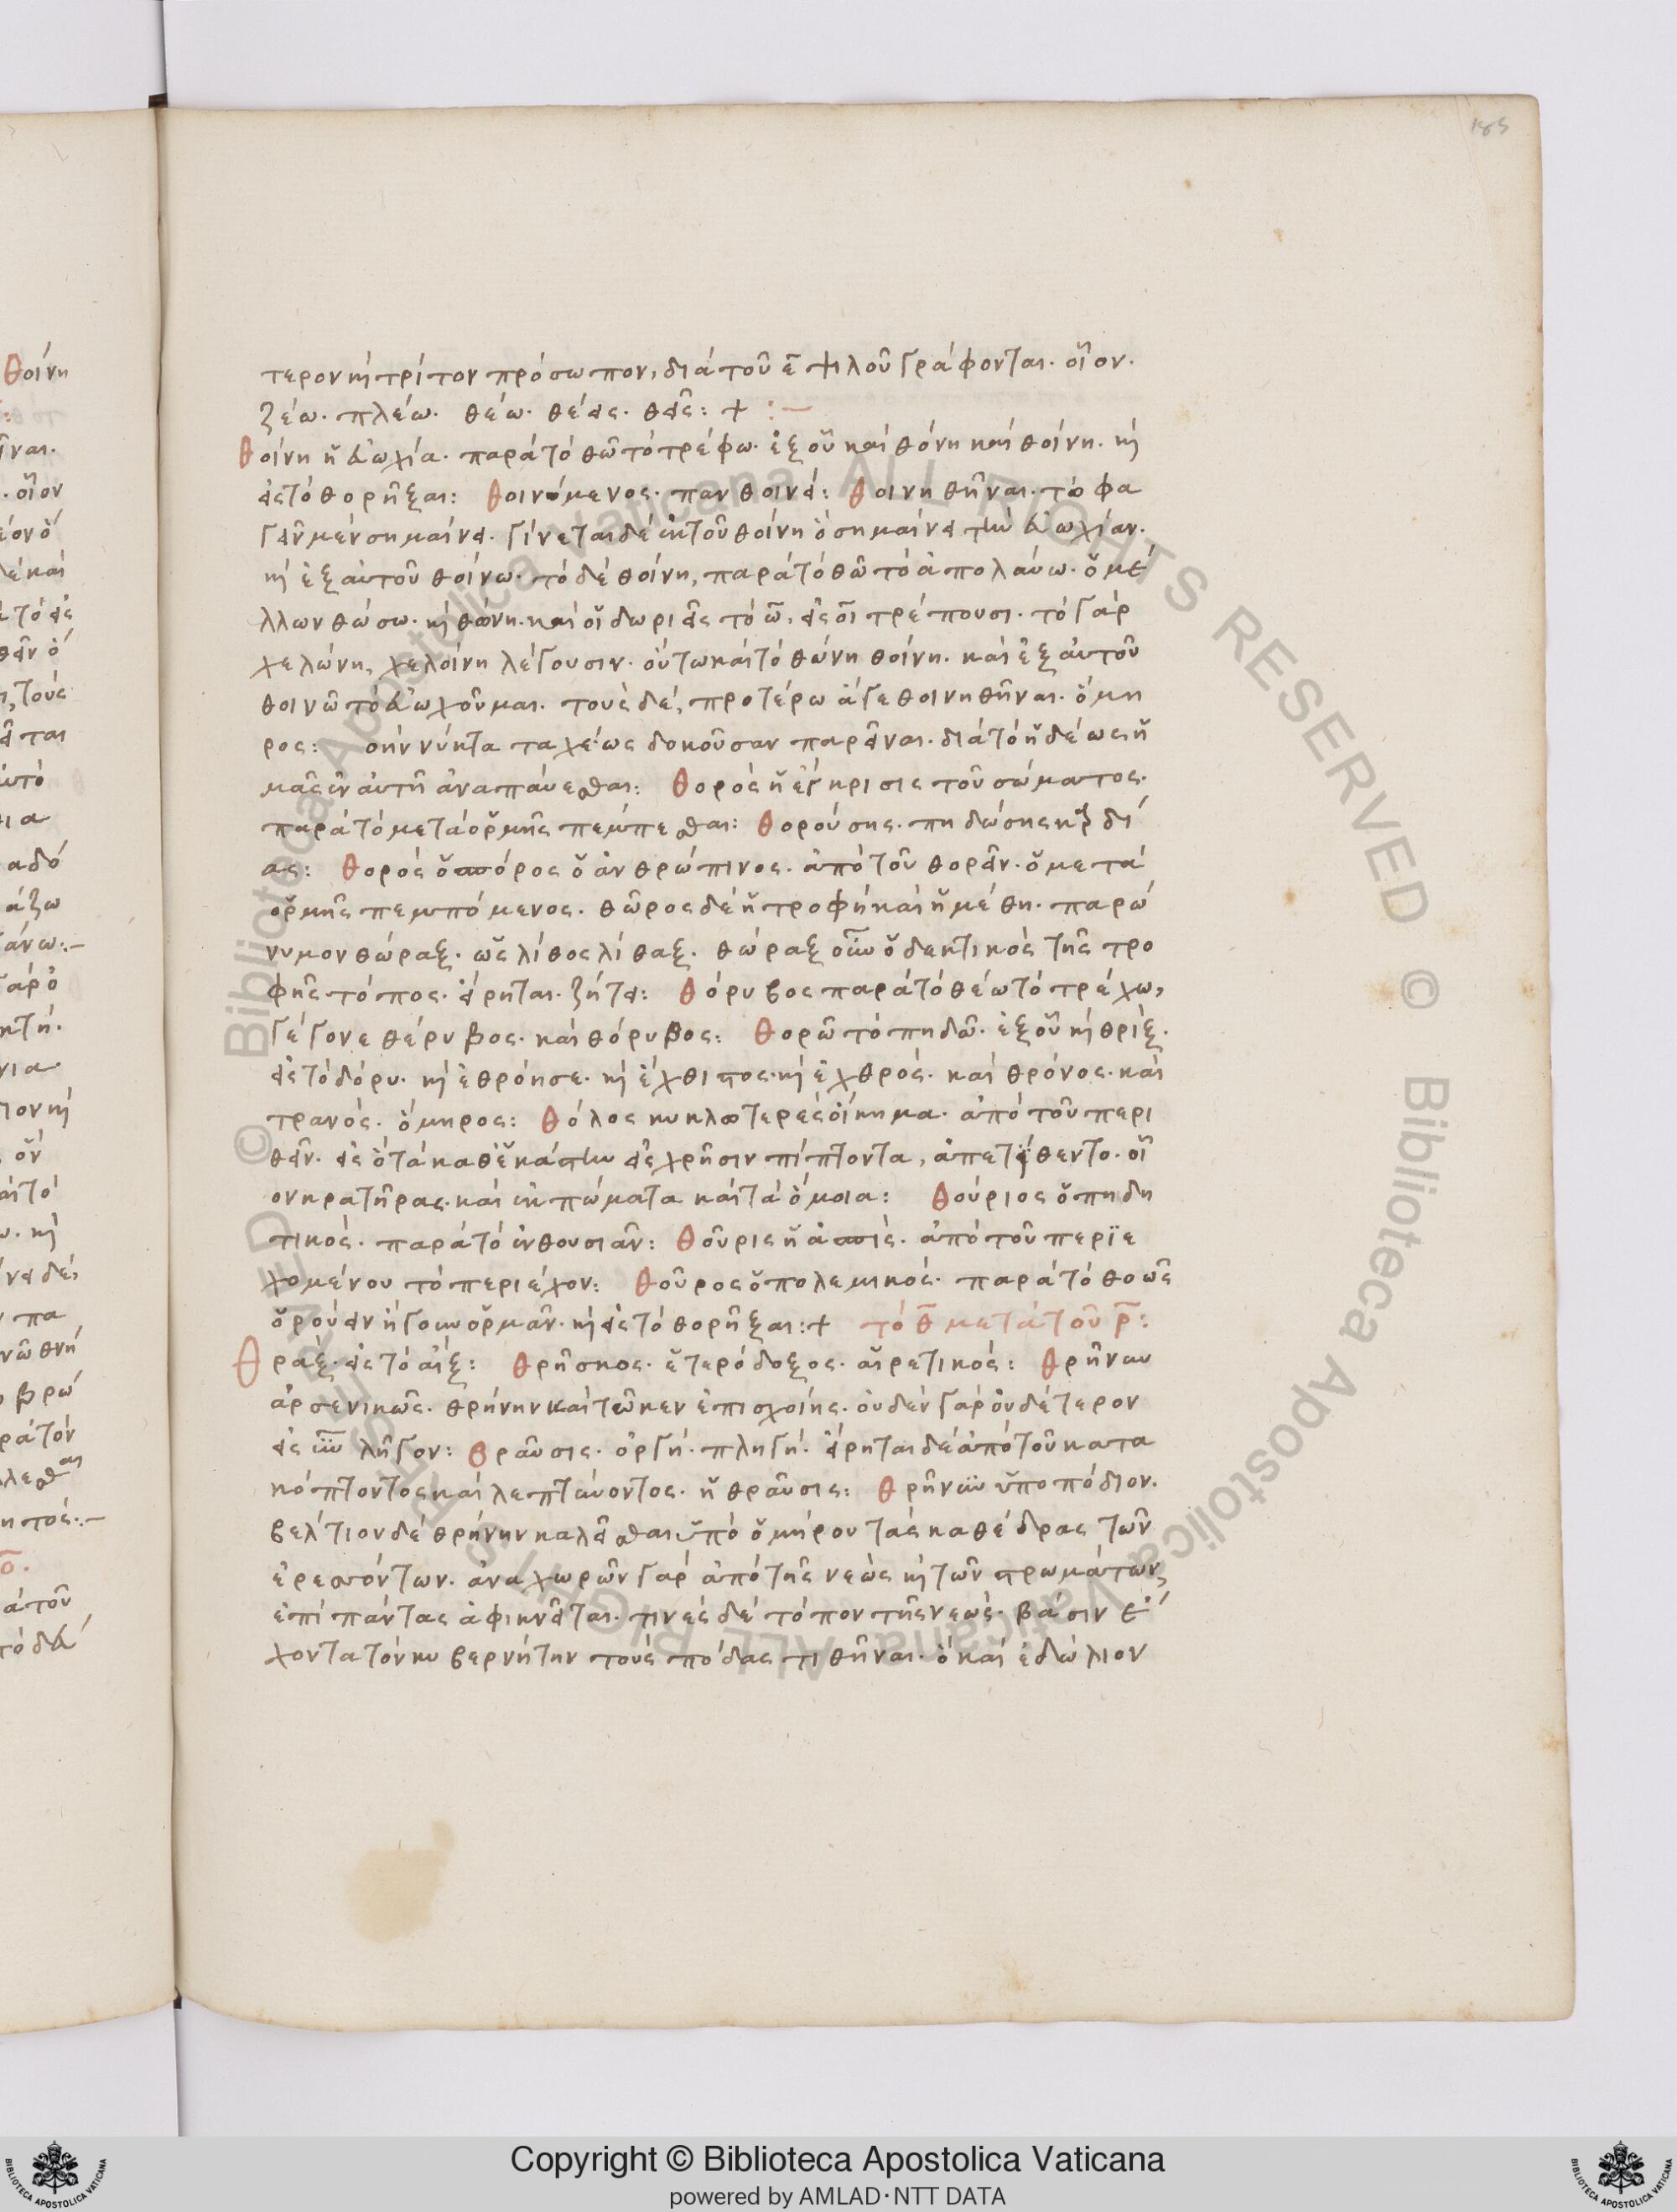 185
τερον κὴ τρίτον πρόσωπον, διὰ τοῦ ε̄ ψιλοῦ γράφονται· οἷον·
ζέω· πλέω· θέω· θέεις· θεῖς: +
Θοίνη ἡ εὐωχία· παρὰ τὸ θῶ τὸ τρέφω· ἐξ οὗ καὶ θόνη καὶ θοίνη· κὴ
εἰς τὸ θορῆξαι: Θοινόμενος· πανθοινεί: Θοινηθῆναι· τὸ φα
γεῖν μὲν σημαίνει· γίνεται δὲ ἐκ τοῦ θοίνη ὃ σημαίνει τὴν εὐωχίαν·
κὴ ἐξ αὐτοῦ θοίνω· τὸ δὲ θοίνη, παρὰ τὸ θῶ τὸ ἀπολαύω· ὁ μέ
λλων θώσω· κὴ θώνη· καὶ οἱ δωριεῖς τὸ ω̄, εἰς οῑ τρέπουσι· τὸ γὰρ
χελώνη, χελοίνη λέγουσιν· οὕτω καὶ τὸ θώνη θοίνη· καὶ ἐξ αὐτοῦ
θοινῶ τὸ εὐωχοῦμαι· τοὺς δέ, προτέρω ἄγε θοινηθῆναι· ὅμη
ρος: θὴν νύκτα ταχέως δοκοῦσαν παρεῖναι· διὰ τὸ ἡδέως ἡ
μᾶς ἐν αὐτῇ ἀναπαύεσθαι: Θορὸς ἡ ἔγκρισις τοῦ σώματος·
παρὰ τὸ μετὰ ὁρμῆς πέμπεσθαι: Θορούσης· πηδώσης καρδί
ας: Θορὸς ὁ σπόρος ὁ ἀνθρώπινος· ἀπὸ τοῦ θορεῖν· ὁ μετὰ
ὁρμῆς πεμπόμενος· θῶρος δὲ ἡ τροφὴ καὶ ἡ μέθη· παρώ
νυμον θώραξ· ὡς λίθος λίθαξ· θώραξ οὖν ὁ δεκτικὸς τῆς τρο
φῆς τόπος· εἴρηται· ζήτει: Θόρυβος παρὰ τὸ θέω τὸ τρέχω,
γέγονε θέρυβος· καὶ θόρυβος: Θορῶ τὸ πηδῶ· ἐξ οὗ κὴ θρίξ·
εἰς τὸ δόρυ· κὴ ἐθρόησε· κὴ ἔχθιστος· κὴ ἐχθρός· καὶ θρόνος· καὶ
τρανός· ὅμηρος: Θόλος κυκλοτερὲς οἴκημα· ἀπὸ τοῦ περι
θεῖν· εἰς ὃ τὰ καθ' ἑκάστην εἰς χρῆσιν πίπτοντα, ἀπετίθεντο· οἷ
ον κρατῆρας· καὶ ἐκπώματα καὶ τὰ ὅμοια: Θούριος ὁ πηδη
τικός· παρὰ τὸ ἐνθουσιᾶν: Θοῦρις ἡ ἀσπίς· ἀπὸ τοῦ περϊε
χομένου τὸ περιέχον: Θοῦρος ὁ πολεμικός· παρὰ τὸ θοῶς
ὀρούειν ἤγουν ὁρμᾶν· κὴ εἰς τὸ θορῆξαι: + τὸ θ̄ μετὰ τοῦ ρ̄:
Θραξ· εἰς τὸ αἴξ: Θρῆσκος· ἑτερόδοξος· αἱρετικός: Θρῆνυν
ἀρσενικῶς· θρήνην καί τῶ κεν ἐπισχοίης· οὐδὲν γὰρ οὐδέτερον
εἰς ῡν λῆγον: Θραῦσις· ὀργή· πληγή· εἴρηται δὲ ἀπὸ τοῦ κατα
κόπτοντος καὶ λεπτύνοντος· ἡ θραῦσις: Θρῆνυν ὑποπόδιον·
βέλτιον δὲ θρήνην καλεῖσθαι ὑπὸ ὁμήρου τὰς καθέδρας τῶν
ἐρεσσόντων· ἀναχωρῶν γὰρ ἀπὸ τῆς νεὼς κὴ τῶν στρωμάτων,
ἐπὶ πάντας ἀφικνεῖται· τινὲς δὲ τόπον τῆς νεώς· βάσιν ἔ
χοντα τὸν κυβερνήτην τοὺς πόδας τιθῆναι· ὃ καὶ ἑδώλιον
© Biblioteca Apostolica Vaticana ALL RIGHTS RESERVED
Copyright © Biblioteca Apostolica Vaticana
powered by AMLAD·NTT DATA